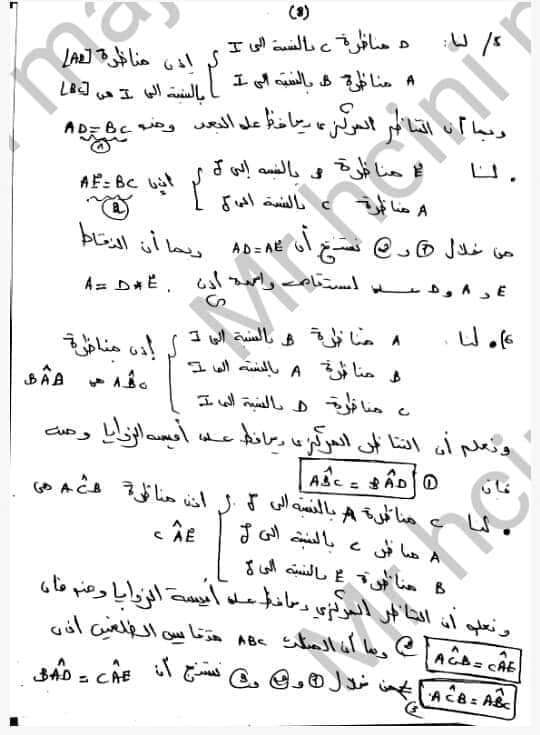 (8)
5/ لنا: D مناظرة C بالنسبة إلى I
A مناظرة B بالنسبة إلى I
إذن مناظرة [AD]
بالنسبة إلى I هي [BC]
وبما أن التناظر المركزي يحافظ على البعد ومنه AD=BC
①
• لنا E مناظرة B بالنسبة إلى J
A مناظرة C بالنسبة إلى J
إذن AE=BC
②
من خلال ① و ② نستنتج أن AD=AE وبما أن النقاط
E و A و D على استقامة واحدة إذن A=D*E.
6) • لنا A مناظرة B بالنسبة إلى I
B مناظرة A بالنسبة إلى I
C مناظرة D بالنسبة إلى I
إذن مناظرة
ABC هي BAD
ونعلم أن التناظر المركزي يحافظ على أقيسة الزوايا ومنه
فإن ① ABC = BAD
• لنا C مناظرة A بالنسبة إلى J
A مناظر C بالنسبة إلى J
B مناظرة E بالنسبة إلى J
إذن مناظرة ACB هي
CAE
ونعلم أن التناظر المركزي يحافظ على أقيسة الزوايا ومنه فإن
ACB = CAE ② وبما أن المثلث ABC متقايس الضلعين إذن
ACB = ABC ③ من خلال ① و ② و ③ نستنتج أن BAD = CAE
Mr hcini